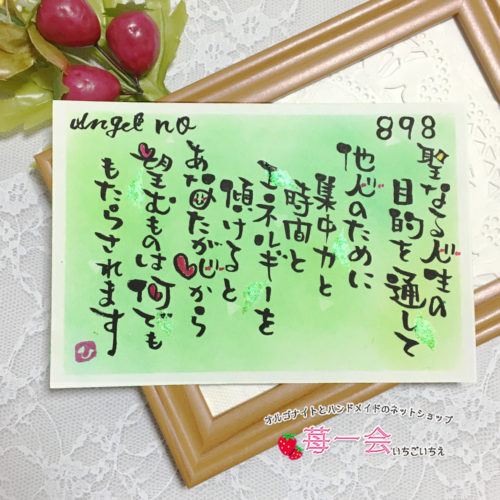 Angel no
898
聖なる人生の
目的を通して
他人のために
集中力と
時間と
エネルギーを
傾けると
あなたが心から
望むものは何でも
もたらされます
オルゴナイトとハンドメイドのネットショップ
苺一会 いちごいちえ